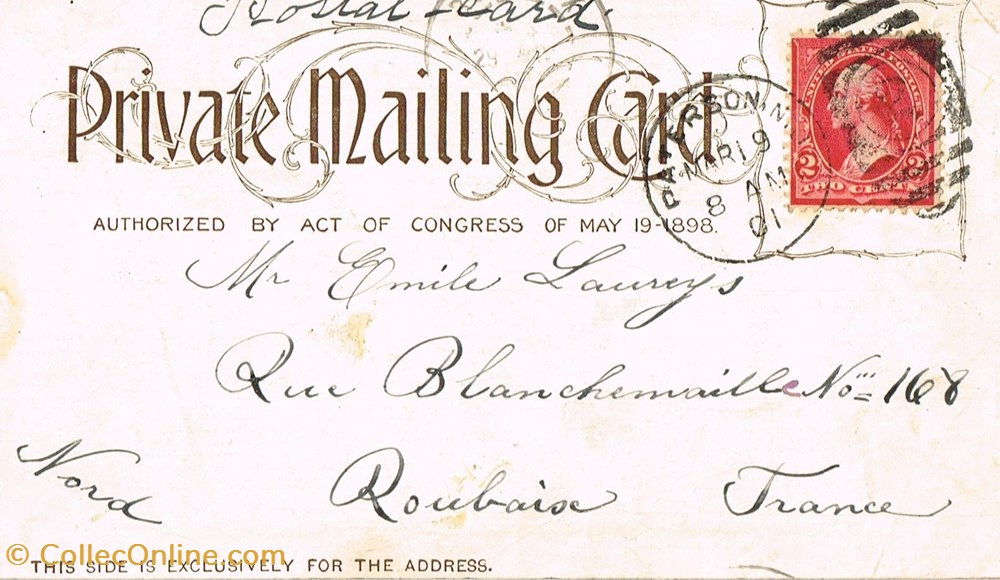 Postal Card
Private Mailing Card
AUTHORIZED BY ACT OF CONGRESS OF MAY 19-1898.
PATERSON, N.
MAR 19
8 AM
01
2
TWO CENTS
Mr Emile Laureys
Rue Blanchemaille No 168
Nord
Roubaix France
THIS SIDE IS EXCLUSIVELY FOR THE ADDRESS.
© CollecOnline.com